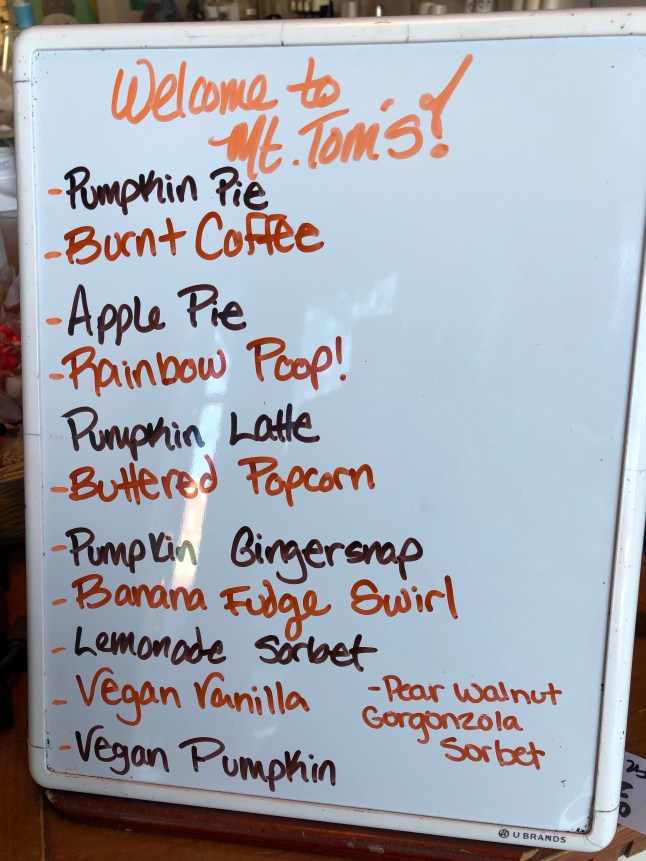 Welcome to
Mt. Tom's!
-Pumpkin Pie
-Burnt Coffee
-Apple Pie
-Rainbow Poop!
Pumpkin Latte
-Buttered Popcorn
-Pumpkin Gingersnap
-Banana Fudge Swirl
-Lemonade Sorbet
-Vegan Vanilla
-Vegan Pumpkin
-Pear Walnut
Gorgonzola
Sorbet
U BRANDS